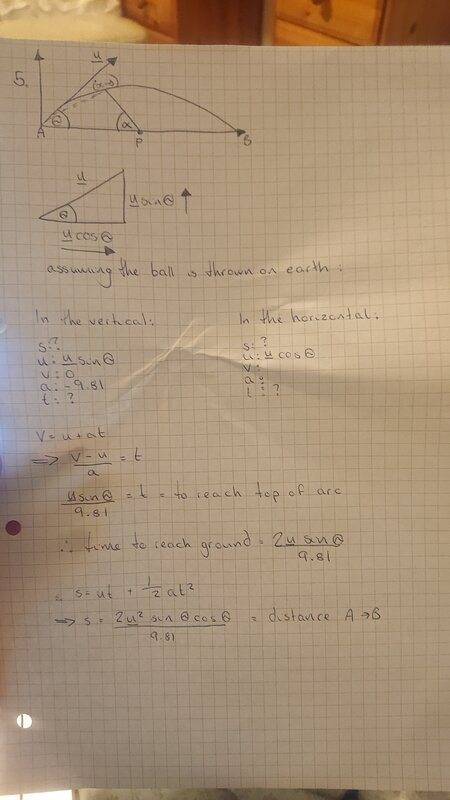 5.
u
(x,y)
A
θ
α
P
B
u
u sinθ
θ
u cosθ
assuming the ball is thrown on earth:
In the vertical:
In the horizontal:
s:?
u: u sinθ
v: 0
a: -9.81
t: ?
s: ?
u: u cosθ
v:
a:
t: ?
v = u + at
⟹ v - u / a = t
u sinθ / 9.81 = t = to reach top of arc
∴ time to reach ground = 2u sinθ / 9.81
s = ut + 1/2 at²
⟹ s = 2u² sinθ cosθ / 9.81 = distance A→B